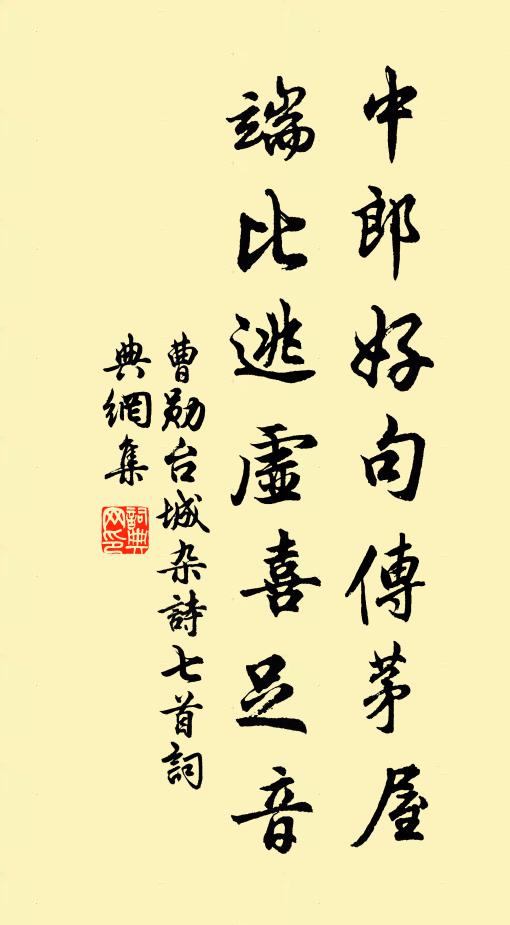 中郎好句傳茅屋
端比逃虛喜足音
曹勛台城杂詩七首詞
典網集
詞典網印